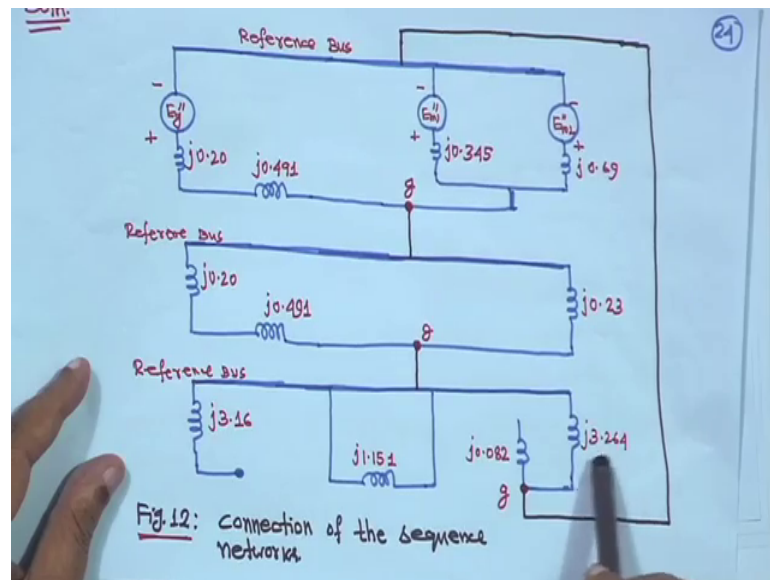 Soln.
24
Reference Bus
Eg"
Em1"
Em2"
j0.20
j0.491
j0.345
j0.69
g
Reference Bus
j0.20
j0.491
g
j0.23
Reference Bus
j3.16
j1.151
j0.082
j3.264
g
Fig.12: Connection of the sequence
networks